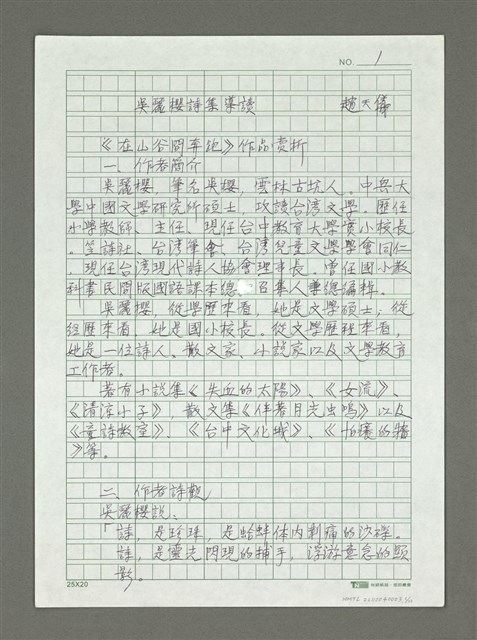 NO. 1
吳麗櫻詩集導讀 趙天儀
《在山谷間奔跑》作品賞析
一、作者簡介
吳麗櫻,筆名吳櫻,雲林古坑人。中興大
學中國文學研究所碩士,攻讀台湾文學。歷任
小學教師、主任、現任台中教育大學實小校長
。笠詩社、台湾筆會、台湾兒童文學學會同仁
,現任台湾現代詩人協會理事長。曾任國小教
科書民間版國語課本總 召集人兼總編輯。
吳麗櫻,從學歷來看,她是文學碩士;從
經歷來看,她是國小校長。從文學歷程來看,
她是一位詩人、散文家、小說家以及文學教育
工作者。
著有小說集《失血的太陽》、《女流》、
《清涼小子》,散文集《伴著月光虫鳴》以及
《童詩教室》、《台中文化城》、《 的牆
》等。
二、作者詩觀
吳麗櫻說:
「詩,是珍珠,是蛤蚌体內刺痛的沙礫。
詩,是靈光閃現的捕手,浮游意念的顯
影。
25X20